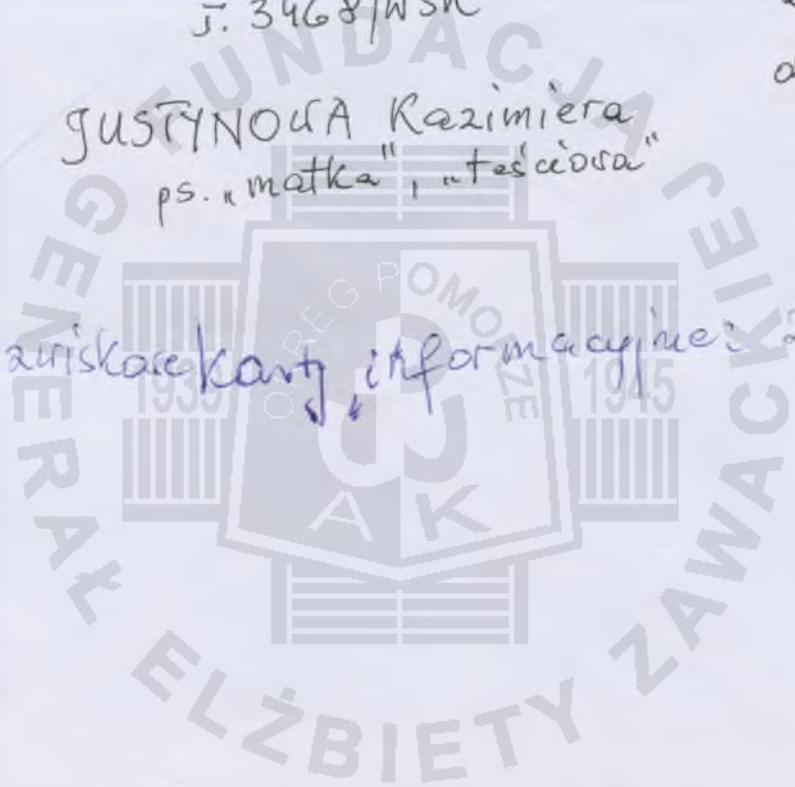 J. 3468/WSK
JUSTYNOWA Kazimiera
ps. „matka”, „teściowa”
zwiskowe karty informacyjne:
FUNDACJA
GENERAŁ ELŻBIETY ZAWACKIEJ
OKRĘG POMORZE
1939 1945
AK